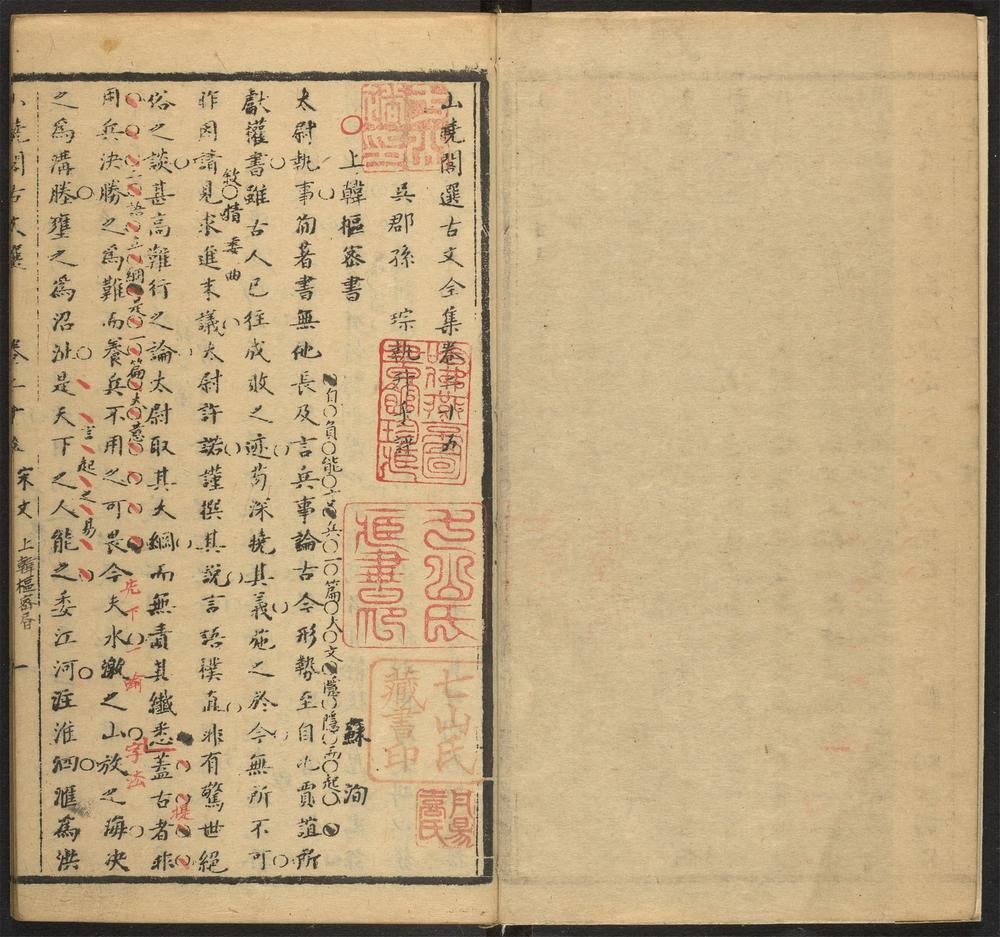 山曉閣選古文全集卷二十五
吳郡孫 琮執升手評
上韓樞密書 蘇洵
太尉執事洵著書無他長及言兵事論古今形勢至自比賈誼所
自負能言兵一篇大文隱隱而起
獻權書雖古人已往成敗之迹苟深曉其義施之於今無所不可
敘情委曲
昨因請見求進末議太尉許諾謹撰其說言語樸直非有驚世絕
俗之談甚高難行之論太尉取其大綱而無責其纖悉蓋古者非
提
用兵決勝之為難而養兵不用之可畏今夫水激之山放之海決
先下一喻
字法
之為溝塍壅之為沼沚是天下之人能之委江河注淮泗滙為洪
言起之易
宋文 上韓樞密書 一
七山氏
藏書印